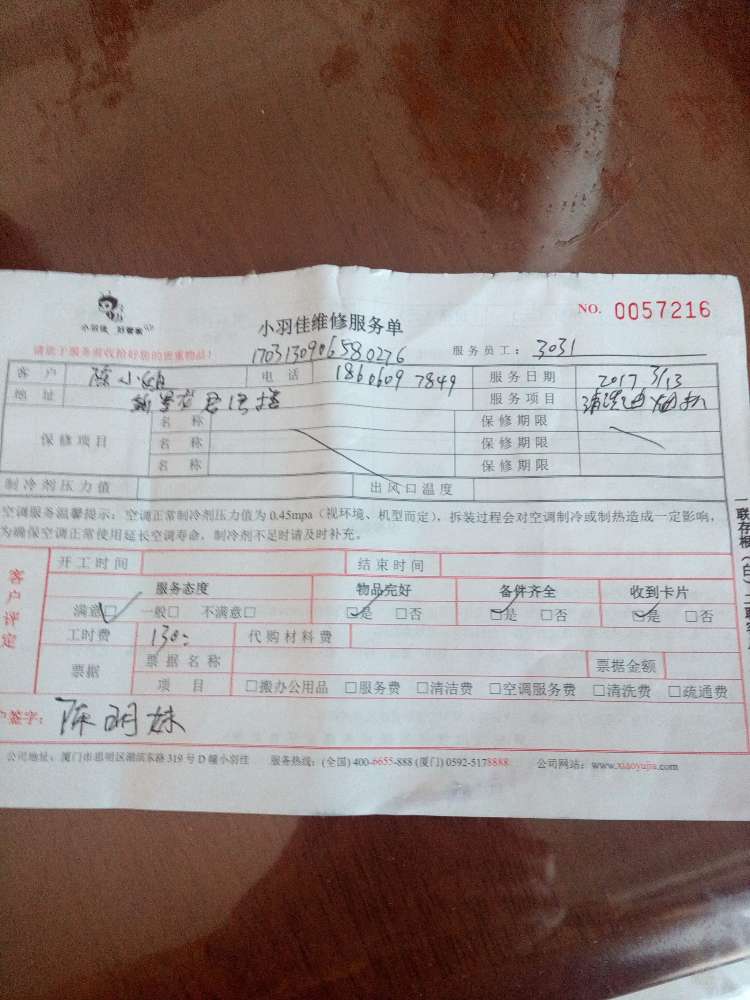 小羽佳 好管家
小羽佳维修服务单
NO. 0057216
请您于服务前收拾好您的贵重物品!
17031309065 80276
服务员工: 3031
客户 陈小姐 电话 18606097849 服务日期 2017 3/13
地址 服务项目 清洗 烟机
保修项目 名称 保修期限
名称 保修期限
名称 保修期限
制冷剂压力值 出风口温度
空调服务温馨提示: 空调正常制冷剂压力值为0.45mpa (视环境、机型而定), 拆装过程会对空调制冷或制热造成一定影响,
为确保空调正常使用延长空调寿命, 制冷剂不足时请及时补充。
客户评定
开工时间 结束时间
服务态度 物品完好 备件齐全 收到卡片
满意□ 一般□ 不满意□ □是 □否 □是 □否 □是 □否
工时费 130 代购材料费
票据 票据名称 票据金额
项目 □搬办公用品 □服务费 □清洁费 □空调服务费 □清洗费 □疏通费
户签字: 陈明妹
公司地址: 厦门市思明区湖滨东路319号D幢小羽佳 服务热线: (全国) 400-6655-888 (厦门) 0592-5178888 公司网站: www.xiaoyujia.com
一联存根(白)